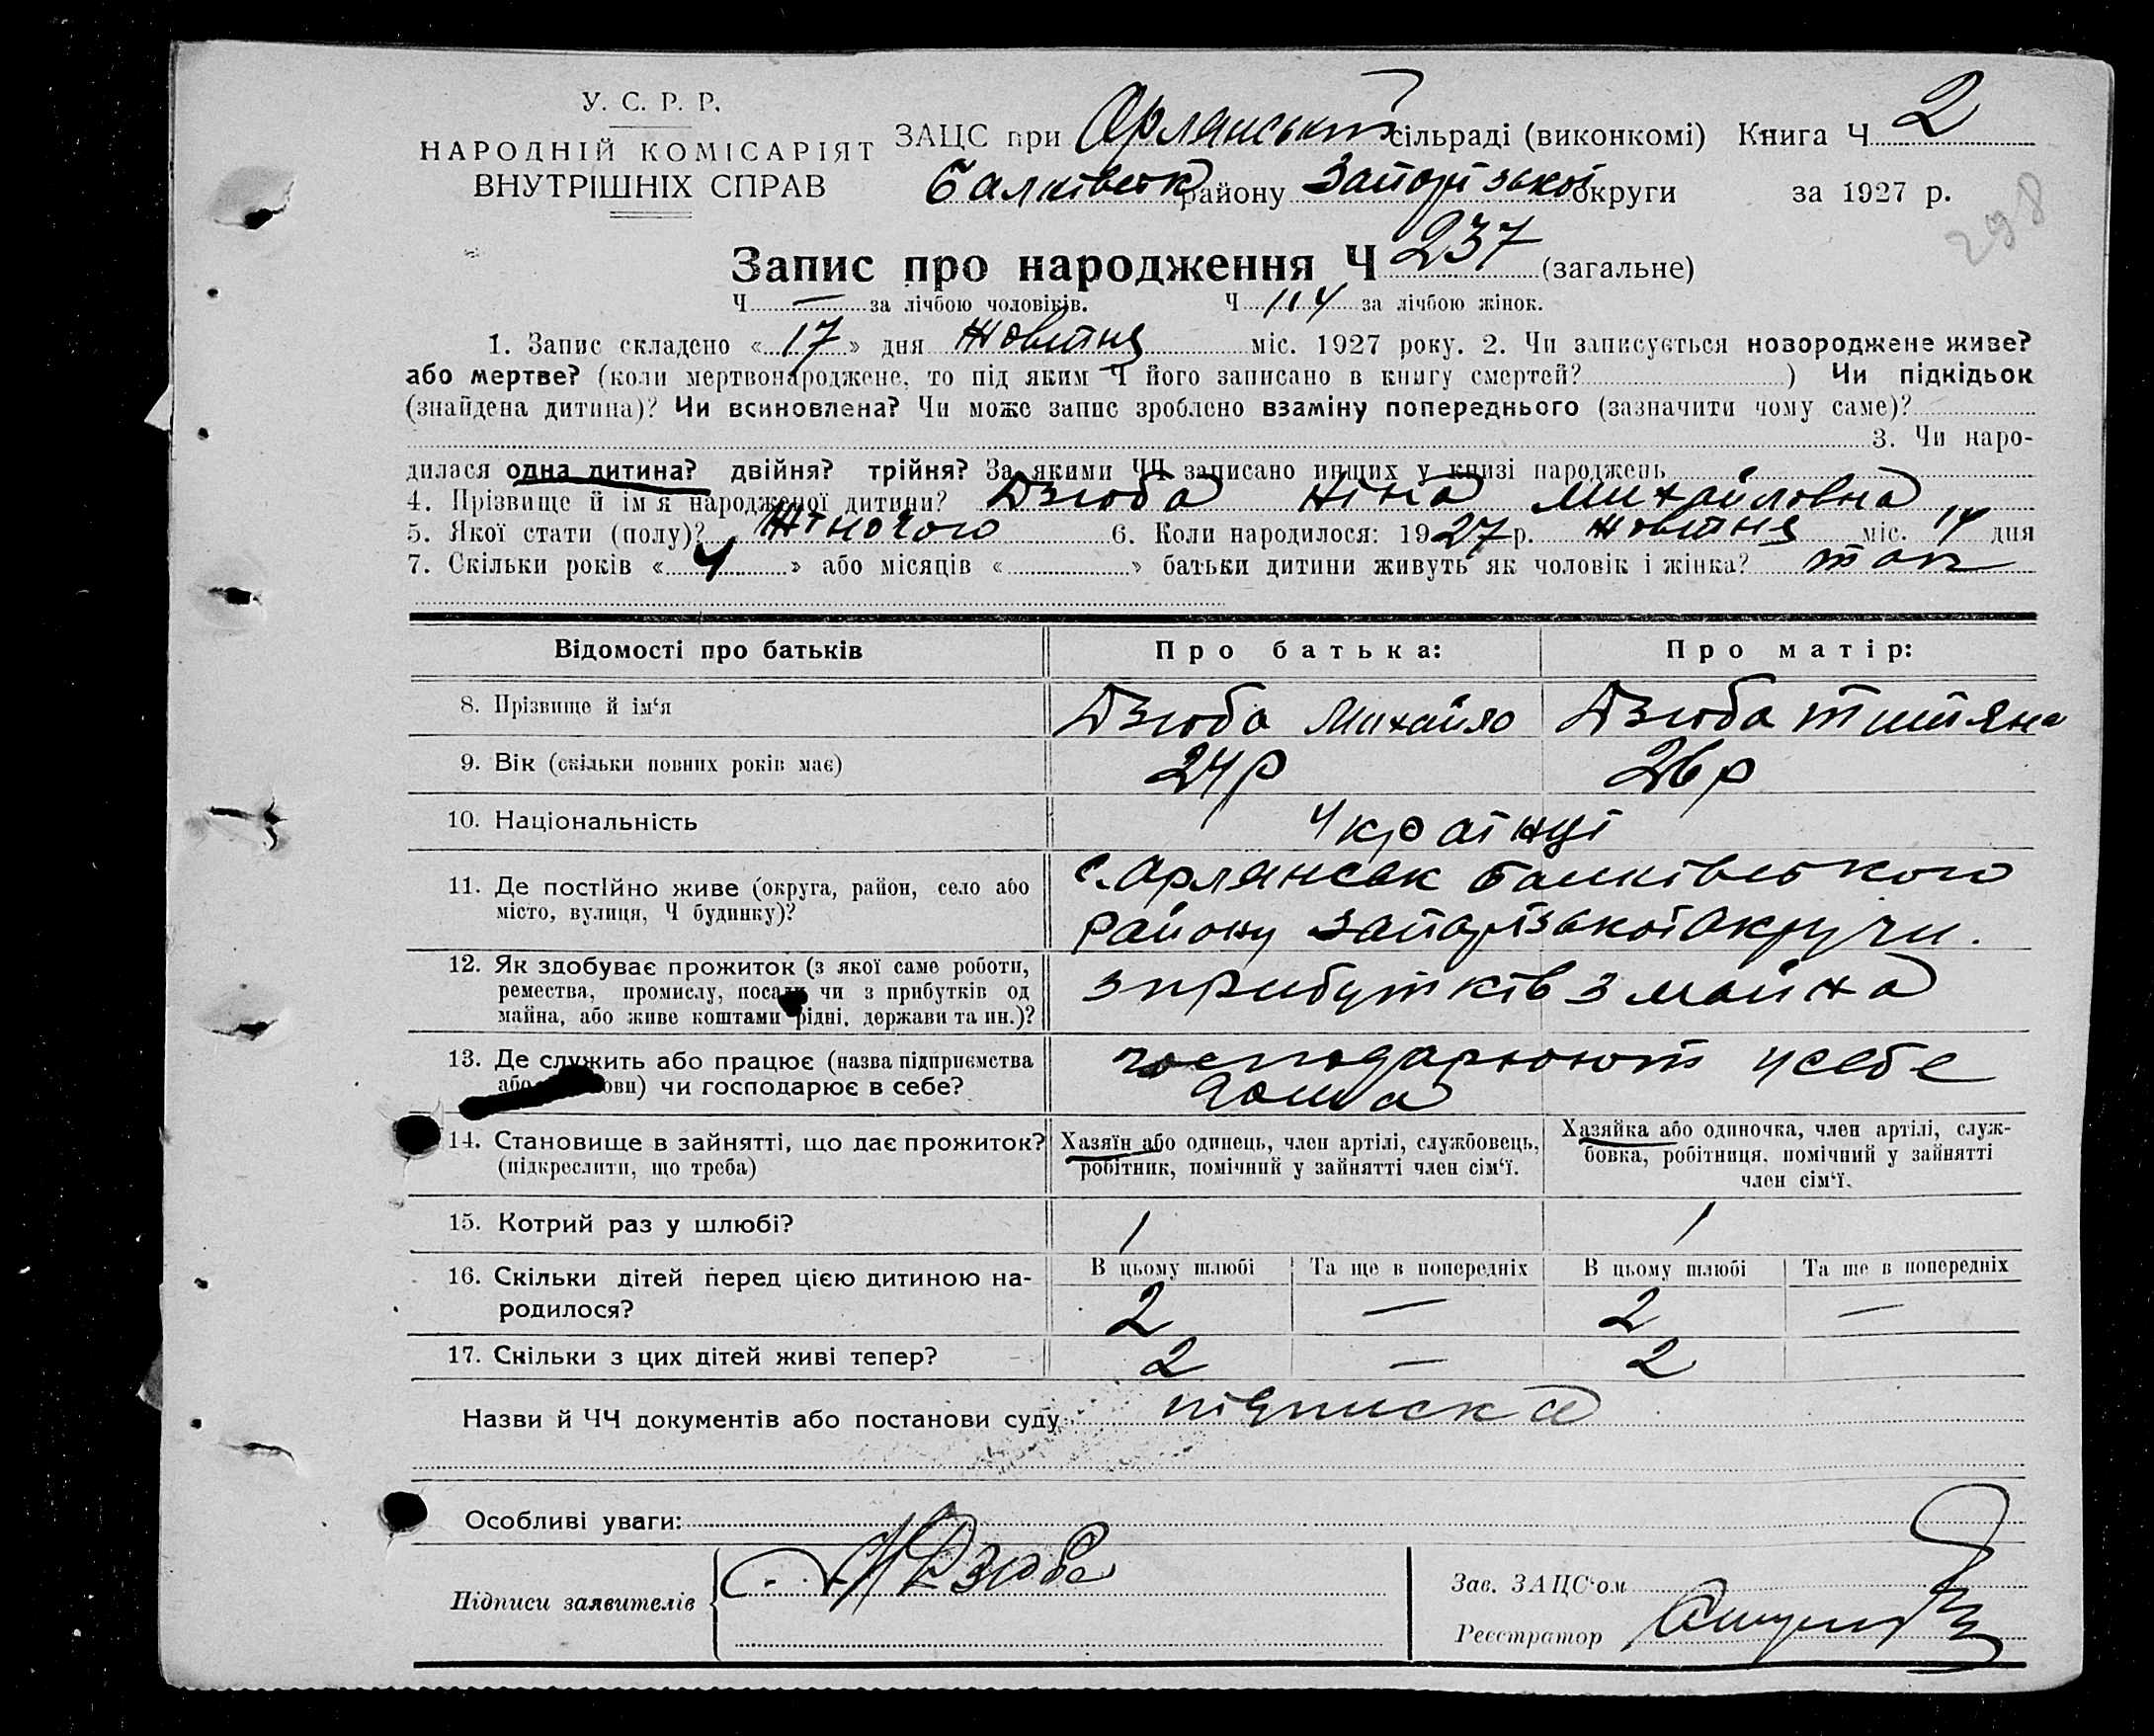 У. С. Р. Р.
НАРОДНІЙ КОМІСАРІЯТ
ВНУТРІШНІХ СПРАВ
ЗАЦС при Орлянській сільраді (виконкомі) Книга Ч 2
Балківськ району Запорізької округи за 1927 р.
298
Запис про народження Ч 237 (загальне)
Ч — за лічбою чоловіків. Ч 114 за лічбою жінок.
1. Запис складено « 17 » дня Жовтня міс. 1927 року. 2. Чи записується новороджене живе?
або мертве? (коли мертвонароджене, то під яким Ч його записано в книгу смертей? ) Чи підкідьок
(знайдена дитина)? Чи всиновлена? Чи може запис зроблено взаміну попереднього (зазначити чому саме)?
3. Чи наро-
дилася одна дитина? двійня? трійня? За якими ЧЧ записано инших у книзі народжень
4. Прізвище й ім'я народженої дитини? Дзюба Ніна Михайловна
5. Якої стати (полу)? Жіночого 6. Коли народилося: 1927 р. Жовтня міс. 14 дня
7. Скільки років « 4 » або місяців « » батьки дитини живуть як чоловік і жінка? так
Відомості про батьків Про батька: Про матір:
8. Прізвище й ім‘я Дзюба Михайло Дзюба Титяна
9. Вік (скільки повних років має) 24 р 26 р
10. Національність Українці
11. Де постійно живе (округа, район, село або
місто, вулиця, Ч будинку)?
с. Орлянськ Балківського
району Запорізької округи.
12. Як здобуває прожиток (з якої саме роботи,
ремества, промислу, посади чи з прибутків од
майна, або живе коштами рідні, держави та ин.)?
з прибутків з майна
13. Де служить або працює (назва підприємства
або ови) чи господарює в себе?
господарюют у себе
дома
14. Становище в зайнятті, що дає прожиток?
(підкреслити, що треба)
Хазяїн або одинець, член артілі, службовець,
робітник, помічний у зайнятті член сім‘ї.
Хазяйка або одиночка, член артілі, служ-
бовка, робітниця, помічний у зайнятті
член сім‘ї.
15. Котрий раз у шлюбі? 1 1
16. Скільки дітей перед цією дитиною на-
родилося?
В цьому шлюбі Та ще в попередніх В цьому шлюбі Та ще в попередніх
2 — 2 —
17. Скільки з цих дітей живі тепер? 2 — 2
Назви й ЧЧ документів або постанови суду підписка
Особливі уваги:
Підписи заявителів Дзюба
Зав. ЗАЦС‘ом
Реєстратор